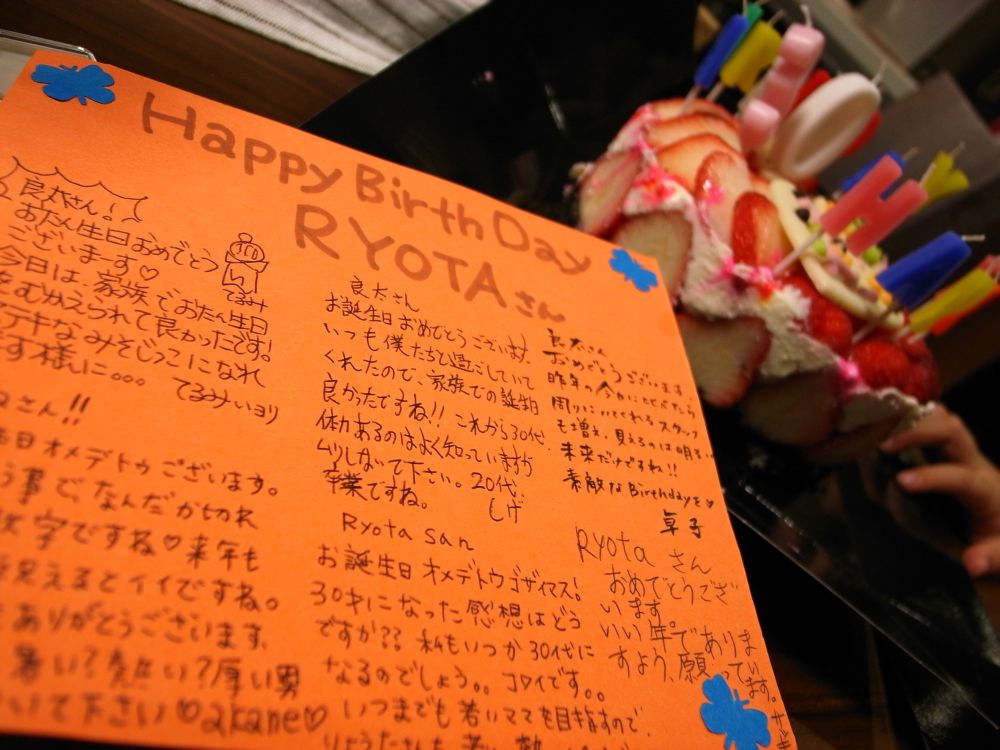 Happy Birth Day
RYOTA さん
良太さん。
おたん生日おめでとう
ございまーす♡
今日は、家族でおたん生日
をむかえられて良かったです!
ステキなみそじっこになれ
ます様に。。。 てるみいより
てるみ
さん!!
生日オメデトウございます。
事で、なんだか切れ
文字ですね♡来年も
見えるとイイですね。
ありがとうございます。
暑い?熱い?厚い男
いて下さい♡akane♡
良太さん
お誕生日おめでとうございます。
いつも僕たちと過ごしていて
くれたので、家族での誕生日
良かったですね!! これから30代
体力あるのはよく知っていますが
ムリしないで下さい。20代、
卒業ですね。 しげ
Ryota san
お誕生日オメデトウゴザイマス!
30才になった感想はどう
ですか?? 私もいつか30代に
なるのでしょう。。コワイです。。
いつまでも若いママを目指すので
りょうたさんも若い
良太さん
おめでとうございます
昨年の今かにくらべたら
周りにいてくれるスタッフ
も増え、見えるのは明るい
未来だけですね!!
素敵なBirthdayを♥
卓子
Ryota さん
おめでとうござ
います。
いい年でありま
すよう、願っています。